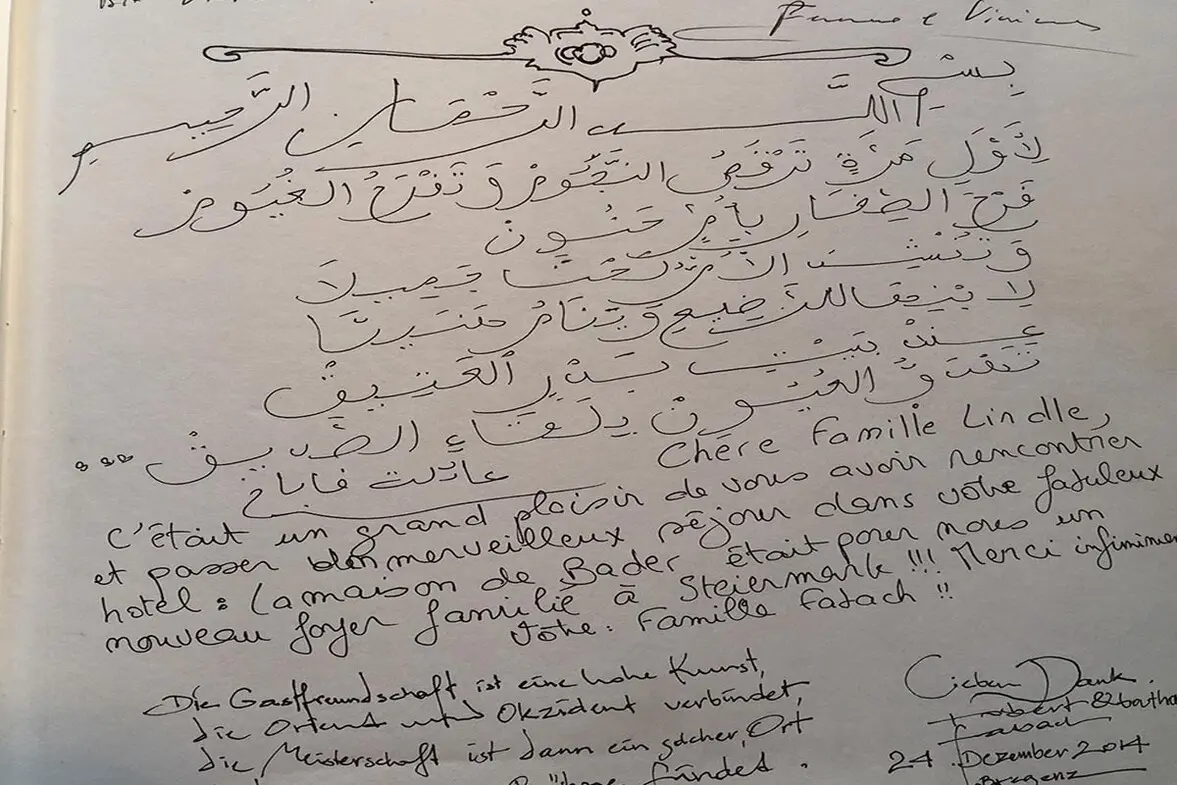 بِسْمِ
اللَّـه الرَّحْمَان الرَّحِيم
لِأَوَّلِ مَرَّةٍ تَرْقُصُ النُّجُومْ وَ تَفْرَحُ الغُيُومْ
فَرَحَ الصِّغَارِ بِأُمٍّ حَنُونْ
وَ تُنْشِد الأُمُّ لَحْنًا جَمِيلَا
لَا
عِنْدَ بَيْتِ بَدْرِ الْعَتِيقْ
العُيُونْ بِلِقَاءِ الصَّدِيقْ ...
Chère Famille Lindle,
C'était un grand plaisir de vous avoir rencontrer
et passer merveilleux séjour dans votre fabuleux
hotel: La maison de Bader était pour nous un
nouveau foyer familié à Steiermark!!! Merci infiniment
Votre: Famille Fatach!!
Die Gastfreundschaft ist eine hohe Kunst,
die Orient und Okzident verbindet,
die Meisterschaft ist dann ein solcher Ort
Bühne findet.
Lieben Dank.
24. Dezember 2014
Bregenz